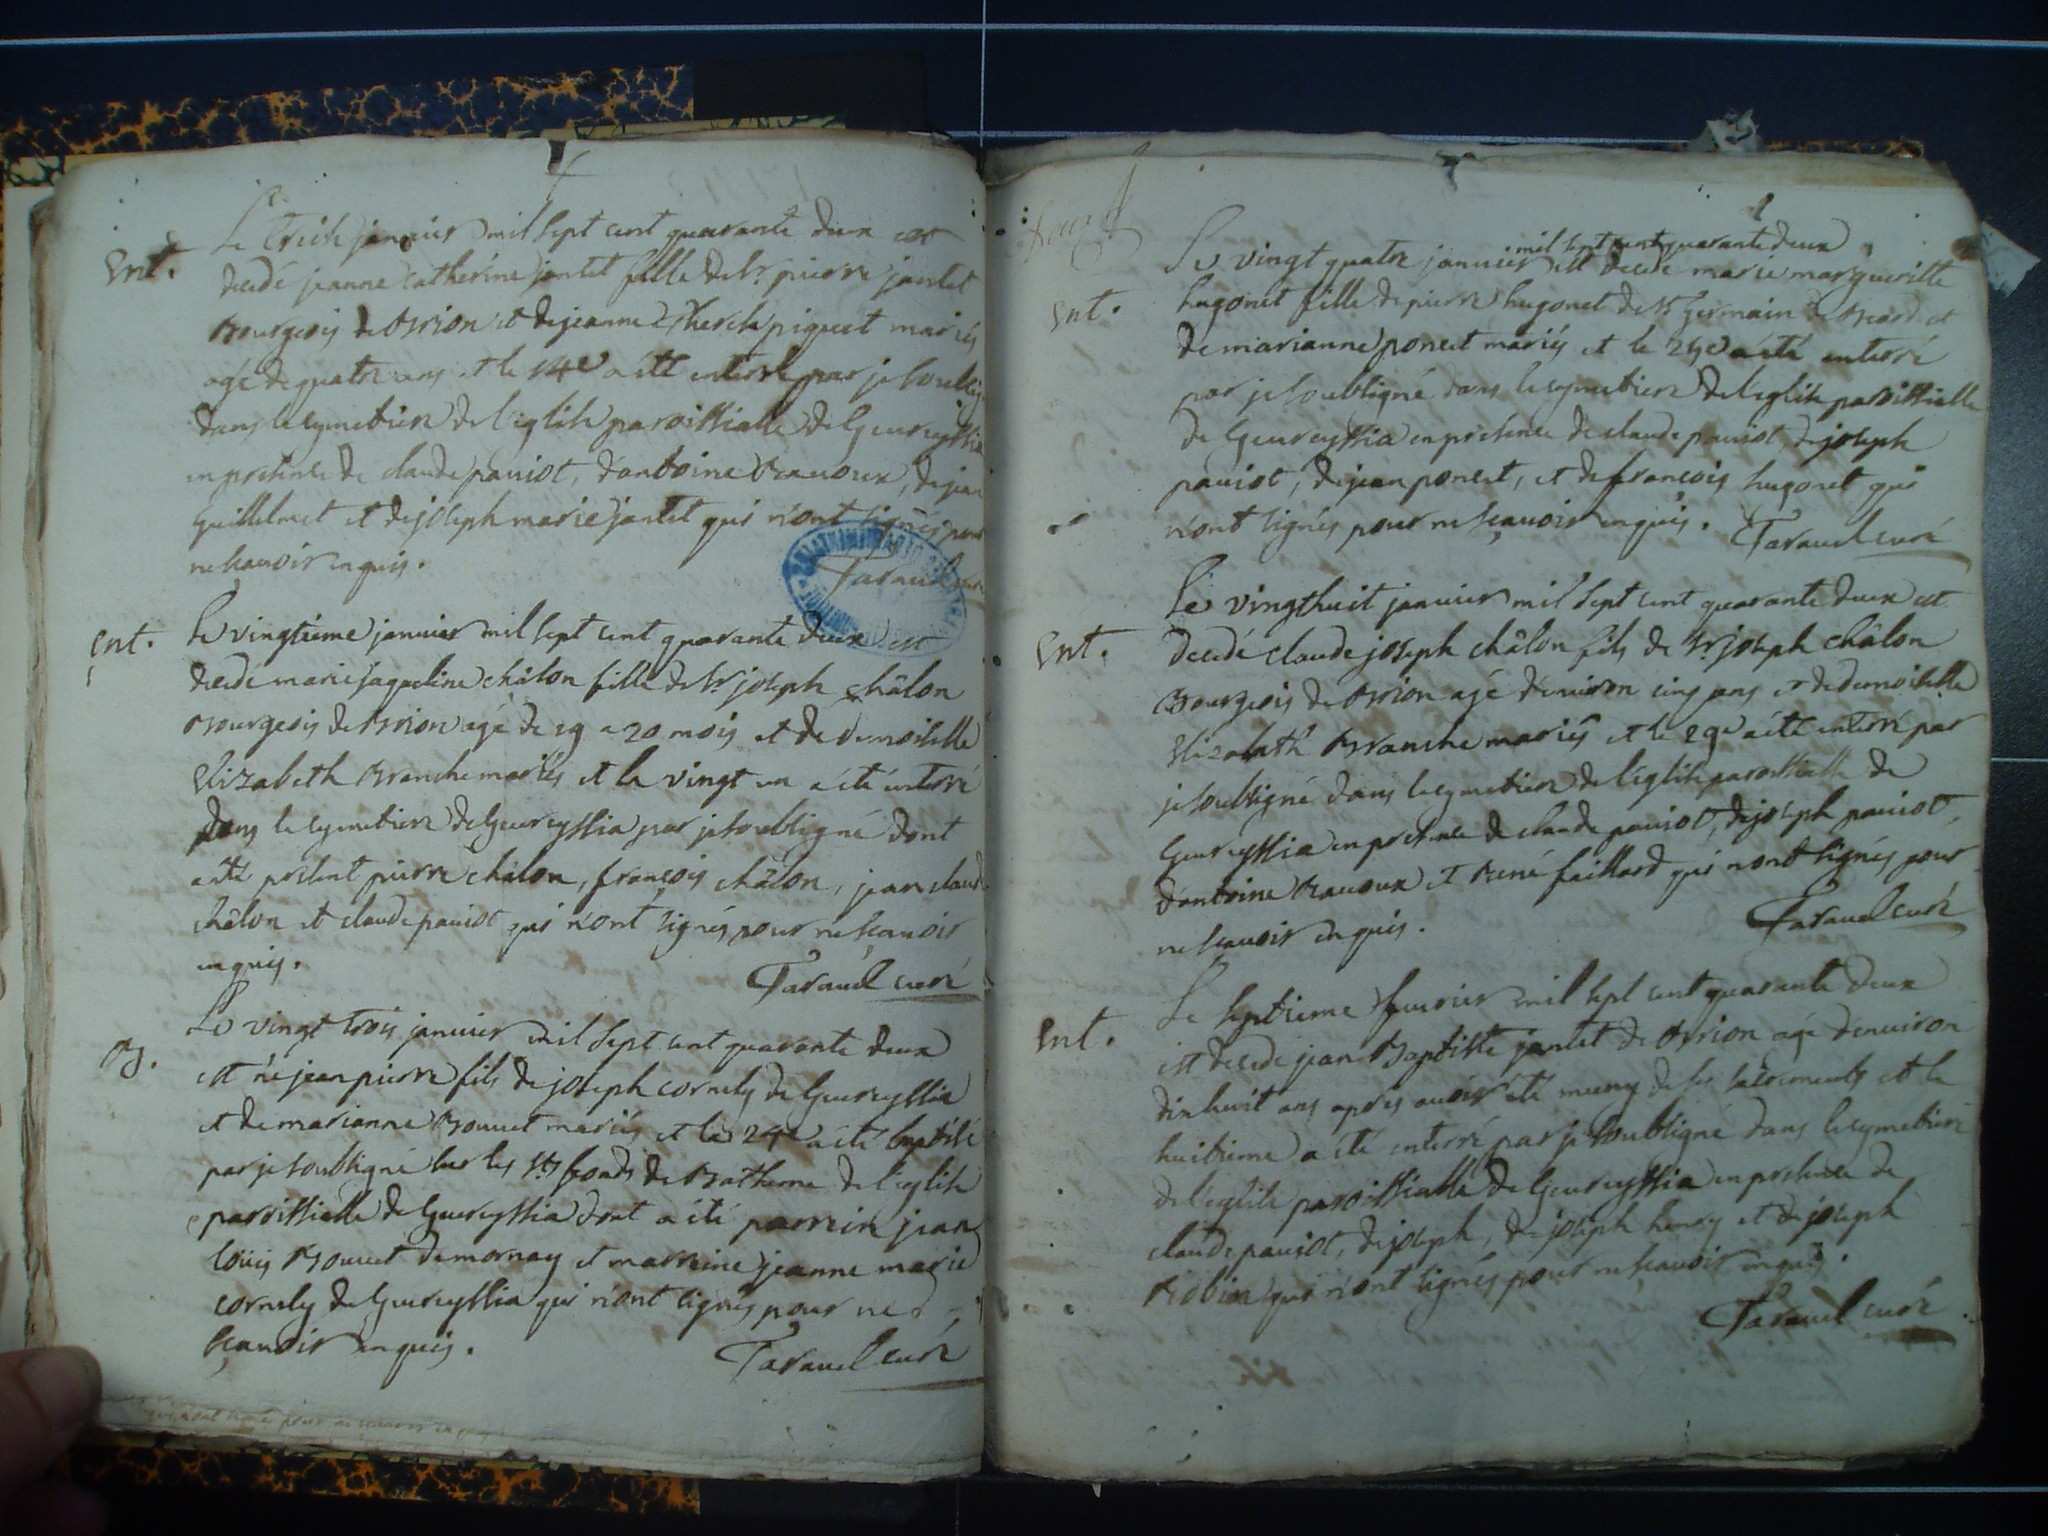 Ent.
Le treize janvier mil sept cent quarante deux est
decedé jeanne catherine jantet fille de Sr. pierre jantet
Bourgeois de Brion et de jeanne piquet mariés
agé de quatre ans et le 14e a été enterré par je soussigné
dans le cymetiere de l'eglise paroissialle de Geureyssia
en presence de claude paviot, d'antoine Ravoux, de jean
Guillelmet et de joseph marie jantet qui n'ont signés pour
ne sçavoir enquis.
Taravel curé
Ent.
Le vingtieme janvier mil sept cent quarante deux est
decedé marie jaqueline châlon fille de Sr. joseph châlon
Bourgeois de Brion agé de 19 a 20 mois et de demoiselle
Elizabeth Branche mariés et le vingt un a été enterré
dans le cymetiere de Geureyssia par je soubsigné dont
été present pierre châlon, françois châlon, jean claude
châlon et claude paviot qui n'ont signés pour ne scavoir
enquis.
Taravel curé
B.
Le vingt trois janvier mil sept cent quarante deux
est né jean pierre fils de joseph cornely de Geureyssia
et de marianne Bouvet mariés et le 24e a été baptisé
par je soubsigné sur les Sts. fonds de Batheme de l'eglise
paroissielle de Geureyssia dont a été parrein jean
Loüis Bouvet de mornay et marreine jeanne marie
cornely de Geureyssia qui n'ont signés pour ne
sçavoir enquis.
Taravel curé
mil sept cent quarante deux
Le vingt quatre janvier est decedé marie margueritte
Ent.
hugonet fille de pierre hugonet de St germain de Beard et
de marianne poncet mariés et le 25e a été enterré
par je soubsigné dans le cymetiere de l'eglise paroissialle
de Geureyssia en presence de claude paviot, de joseph
paviot, de jean poncet, et de françois hugonet qui
n'ont signés pour ne sçavoir enquis.
Taravel curé
Le vingthuit janvier mil sept cent quarante deux est
Ent.
decedé claude joseph châlon fils de Sr. joseph châlon
Bourgeois de Brion agé d'environ cinq ans et de demoiselle
Elizabeth Branche mariés et le 29e a été enterré par
je soubsigné dans le cymetiere de l'eglise paroissialle de
Geureyssia en presence de claude paviot, de joseph paviot,
d'antoine Ravoux et René faillard qui n'ont signés pour
ne scavoir enquis.
Taravel curé
Le septieme fevrier mil sept cent quarante deux
Ent.
est decedé jean Baptiste jantet de Brion agé d'environ
dixhuit ans apres avoir été muny de ses sacrements et le
huitieme a été enterré par je soubsigné dans le cymetiere
de l'eglise paroissialle de Geureyssia en presence de
claude paviot, de joseph, de joseph henry et de joseph
Robin qui n'ont signés pour ne scavoir enquis.
Taravel curé